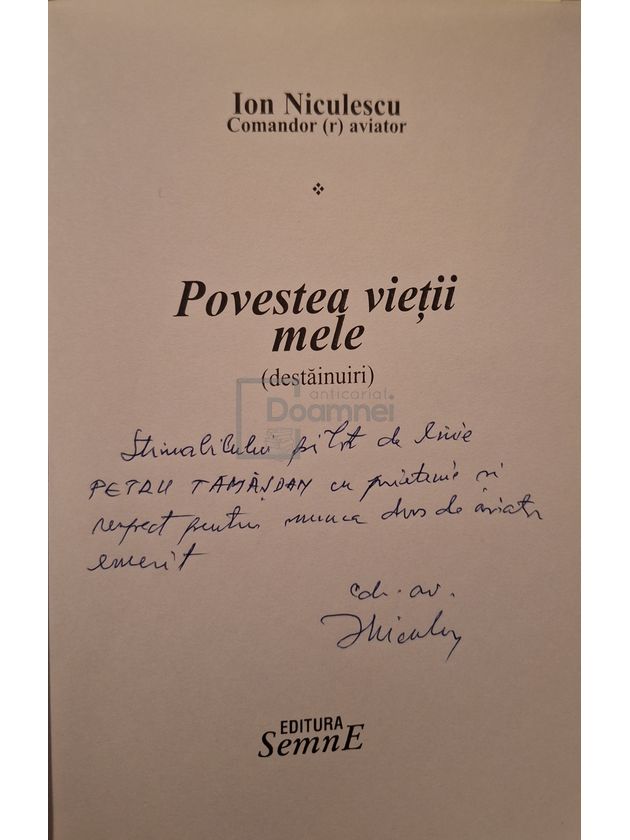 Ion Niculescu
Comandor (r) aviator
Povestea vieții
mele
(destăinuiri)
anticariat
Doamnei
Stimabilului pilot de linie
PETRU TĂMÂȘDAN cu prietenie și
respect pentru munca dvs de aviator
emerit
cdr. av.
INiculescu
EDITURA
SemnE